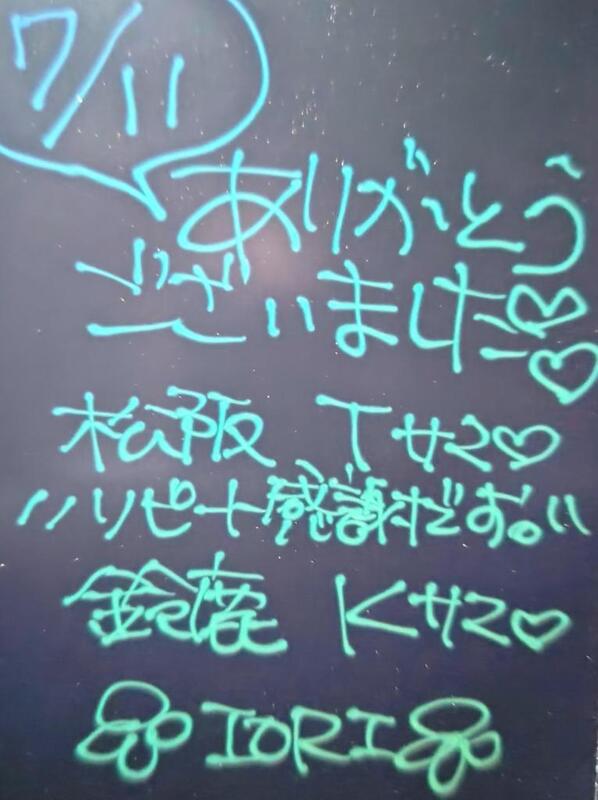 7/11
ありがとう
ございました♡♡
松阪 Tサマ♡
"リピート感謝です。"
鈴鹿 Kサマ♡
IORI